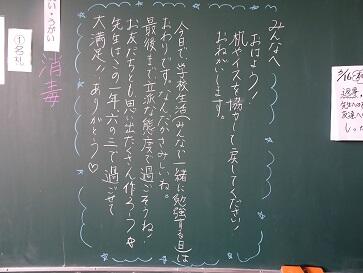 みんなへ
おはよう！
机やイスを協力して戻してください！
おねがいします。
今日で学校生活(みんなで一緒に勉強する日)は
おわりです。なんだかさみしいね。
最後まで立派な態度で過ごそうね！
お友だちとも思い出たくさん作ろう
先生はこの一年、六の三で過ごせて
大満足！！ありがとう♡
うがい
①名札
消毒
3/16